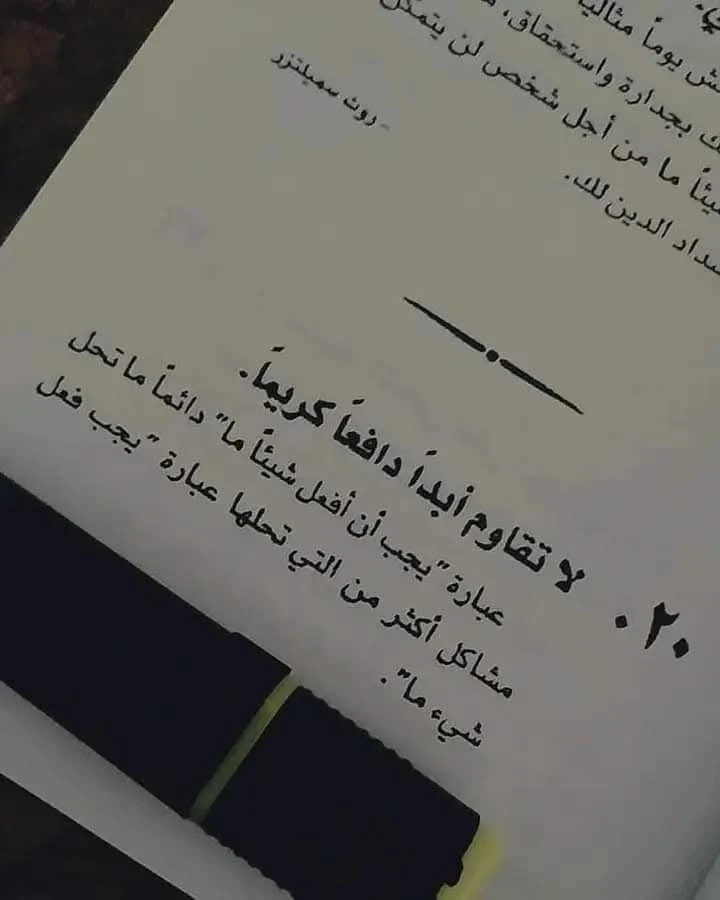 ش يوماً مثاليا
ك بجدارة واستحقاق،
شيئاً ما من أجل شخص لن يتمكن
سداد الدين لك.
- روث سميلتزر
٢٠. لا تقاوم أبداً دافعاً كريماً.
عبارة "يجب أن أفعل شيئاً ما" دائماً ما تحل
مشاكل أكثر من التي تحلها عبارة "يجب فعل
شيء ما".